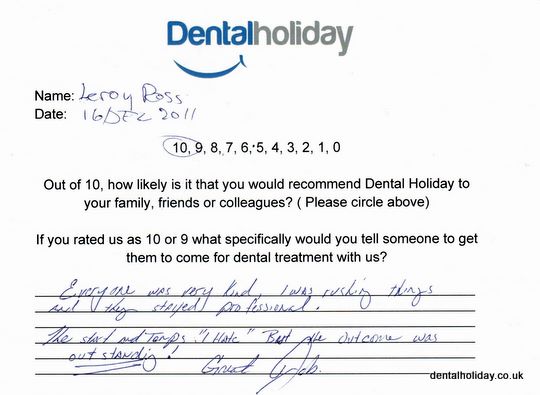 Dentalholiday
Name: Leroy Ross
Date: 16 DEC 2011
10, 9, 8, 7, 6, 5, 4, 3, 2, 1, 0
Out of 10, how likely is it that you would recommend Dental Holiday to
your family, friends or colleagues? ( Please circle above)
If you rated us as 10 or 9 what specifically would you tell someone to get
them to come for dental treatment with us?
Everyone was very kind I was rushing things
and they stayed professional.
The start and Temps "I Hate" But the outcome was
outstandig!
Great Job.
dentalholiday.co.uk